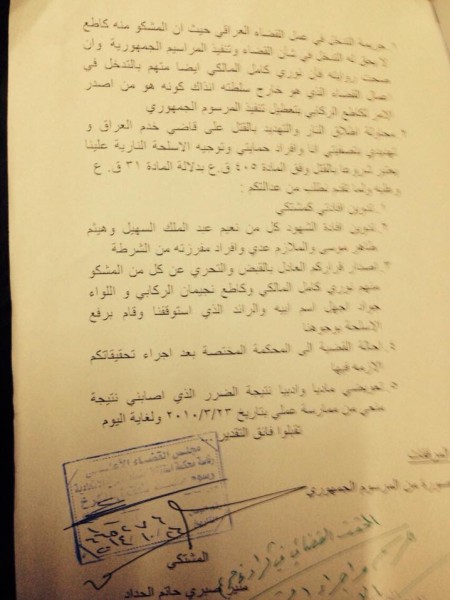 ١. جريمة التدخل في عمل القضاء العراقي حيث ان المشكو منه كاطع
لا يحق له التدخل في شأن القضاء وتنفيذ المراسيم الجمهورية وان
صحت روايته فان نوري كامل المالكي ايضا متهم بالتدخل في
اعمال القضاء الذي هو خارج سلطته انذاك كونه هو من اصدر
الامر لكاطع الركابي بتعطيل تنفيذ المرسوم الجمهوري
٢. محاولة اطلاق النار والتهديد بالقتل على قاضي خدم العراق و
تهديدي بتصفيتي انا وافراد حمايتي وتوجيه الاسلحة النارية علينا
يعتبر شروعا بالقتل وفق المادة ٤٠٥ ق.ع بدلالة المادة ٣١ ق. ع
وعليه ولما تقدم نطلب من عدالتكم :
١. تدوين افادتي كمشتكي
٢. تدوين افادة الشهود كل من نعيم عبد الملك السهيل وهيثم
طاهر موسى والملازم عدي وافراد مفرزته من الشرطة
٣. اصدار قراركم العادل بالقبض والتحري عن كل من المشكو
منهم نوري كامل المالكي وكاطع نجيمان الركابي و اللواء
جواد اجهل اسم ابيه والرائد الذي استوقفنا وقام برفع
الاسلحة بوجوهنا
٤. احالة القضية الى المحكمة المختصة بعد اجراء تحقيقاتكم
الازمه فيها
٥. تعويضي ماديا وادبيا نتيجة الضرر الذي اصابني نتيجة
منعي من ممارسة عملي بتاريخ ٢٠١٠/٣/٢٣ ولغاية اليوم
تقبلوا فائق التقدير ..
المرفقات
صورة من المرسوم الجمهوري
مجلس القضاء الأعلى
رئاسة محكمة استئناف
الاتحادية
المشتكي
منير صبري حاتم الحداد